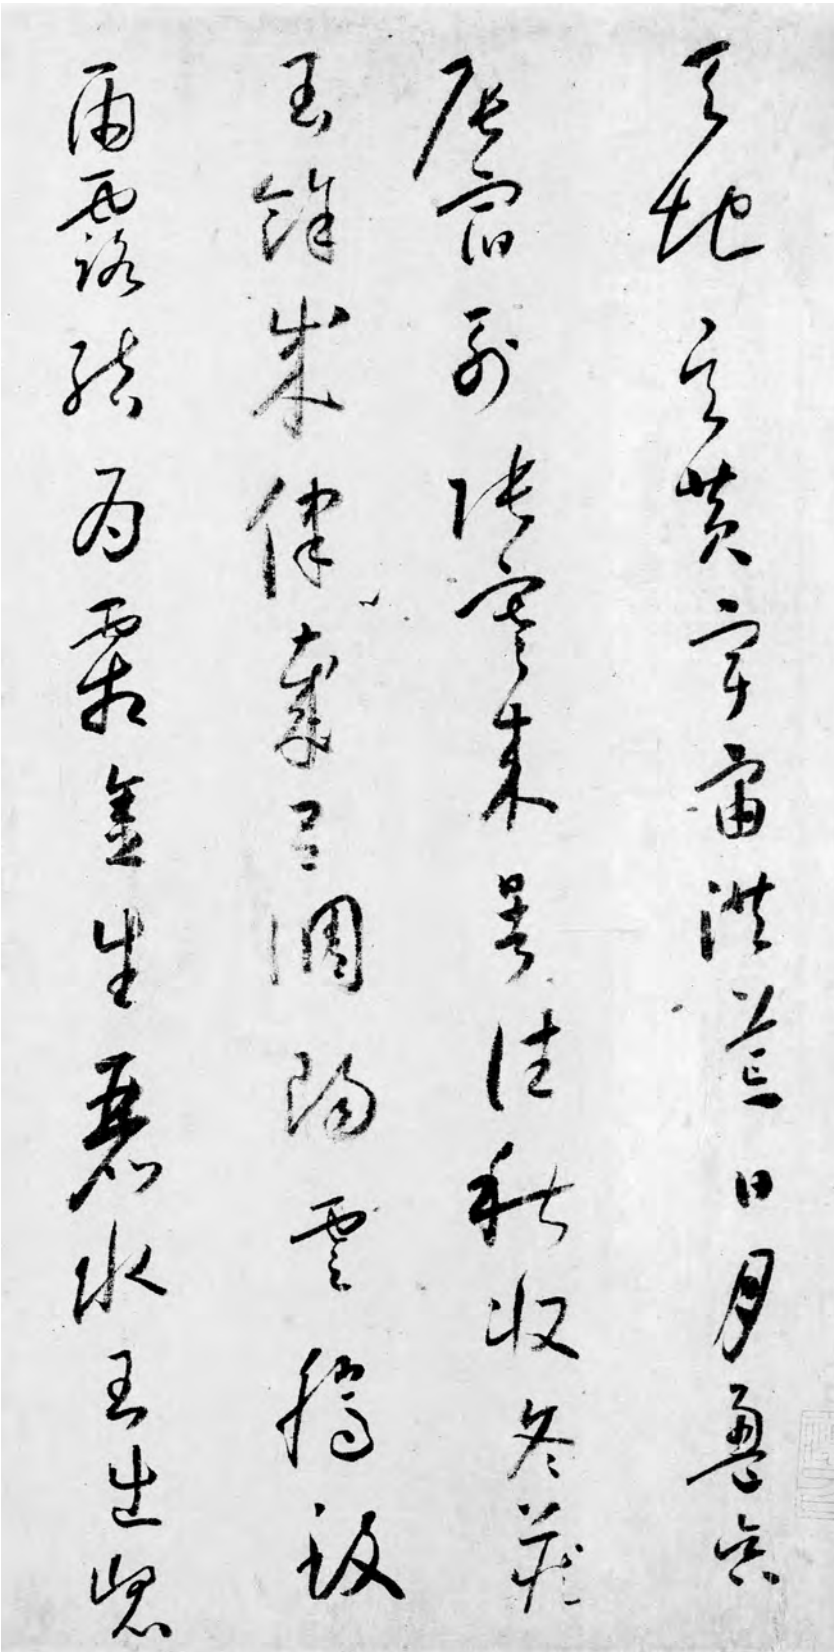 天地玄黃宇宙洪荒日月盈昃
辰宿列張寒來暑往秋收冬藏
閏餘成律歲呂調陽雲騰致
雨露結為霜金生麗水玉出崑